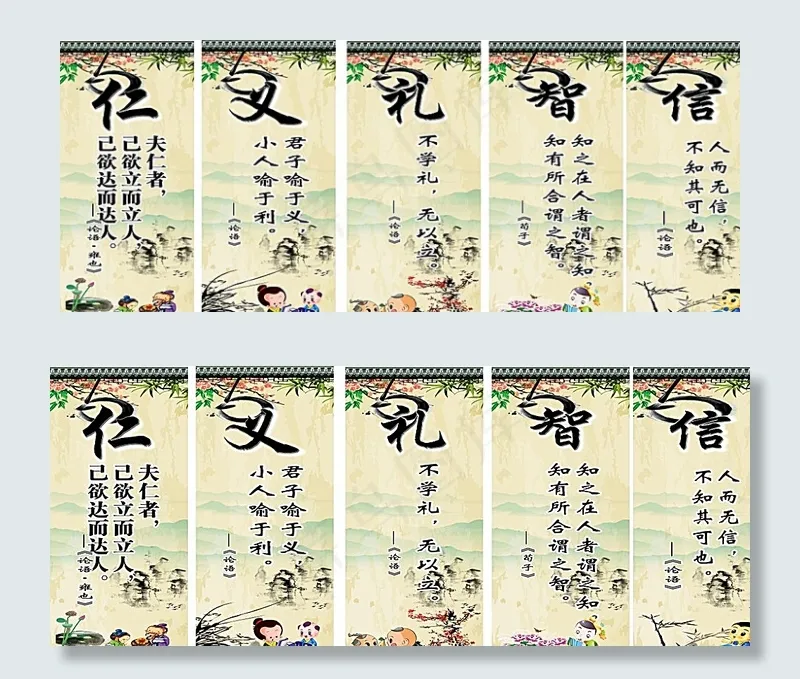 仁
夫仁者，
己欲立而立人，
己欲达而达人。
——《论语·雍也》
义
君子喻于义，
小人喻于利。
——《论语》
礼
不学礼，无以立。
——《论语》
智
知之在人者谓之知
知有所合谓之智。
——《荀子》
信
人而无信，
不知其可也。
——《论语》
仁
夫仁者，
己欲立而立人，
己欲达而达人。
——《论语·雍也》
义
君子喻于义，
小人喻于利。
——《论语》
礼
不学礼，无以立。
——《论语》
智
知之在人者谓之知
知有所合谓之智。
——《荀子》
信
人而无信，
不知其可也。
——《论语》